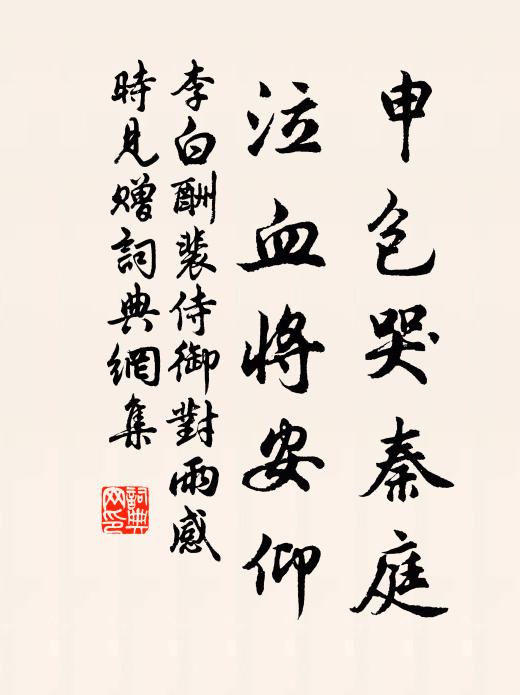 申包哭秦庭
泣血將安仰
李白酬裴侍御對雨感
時見贈詞典網集
詞典網印